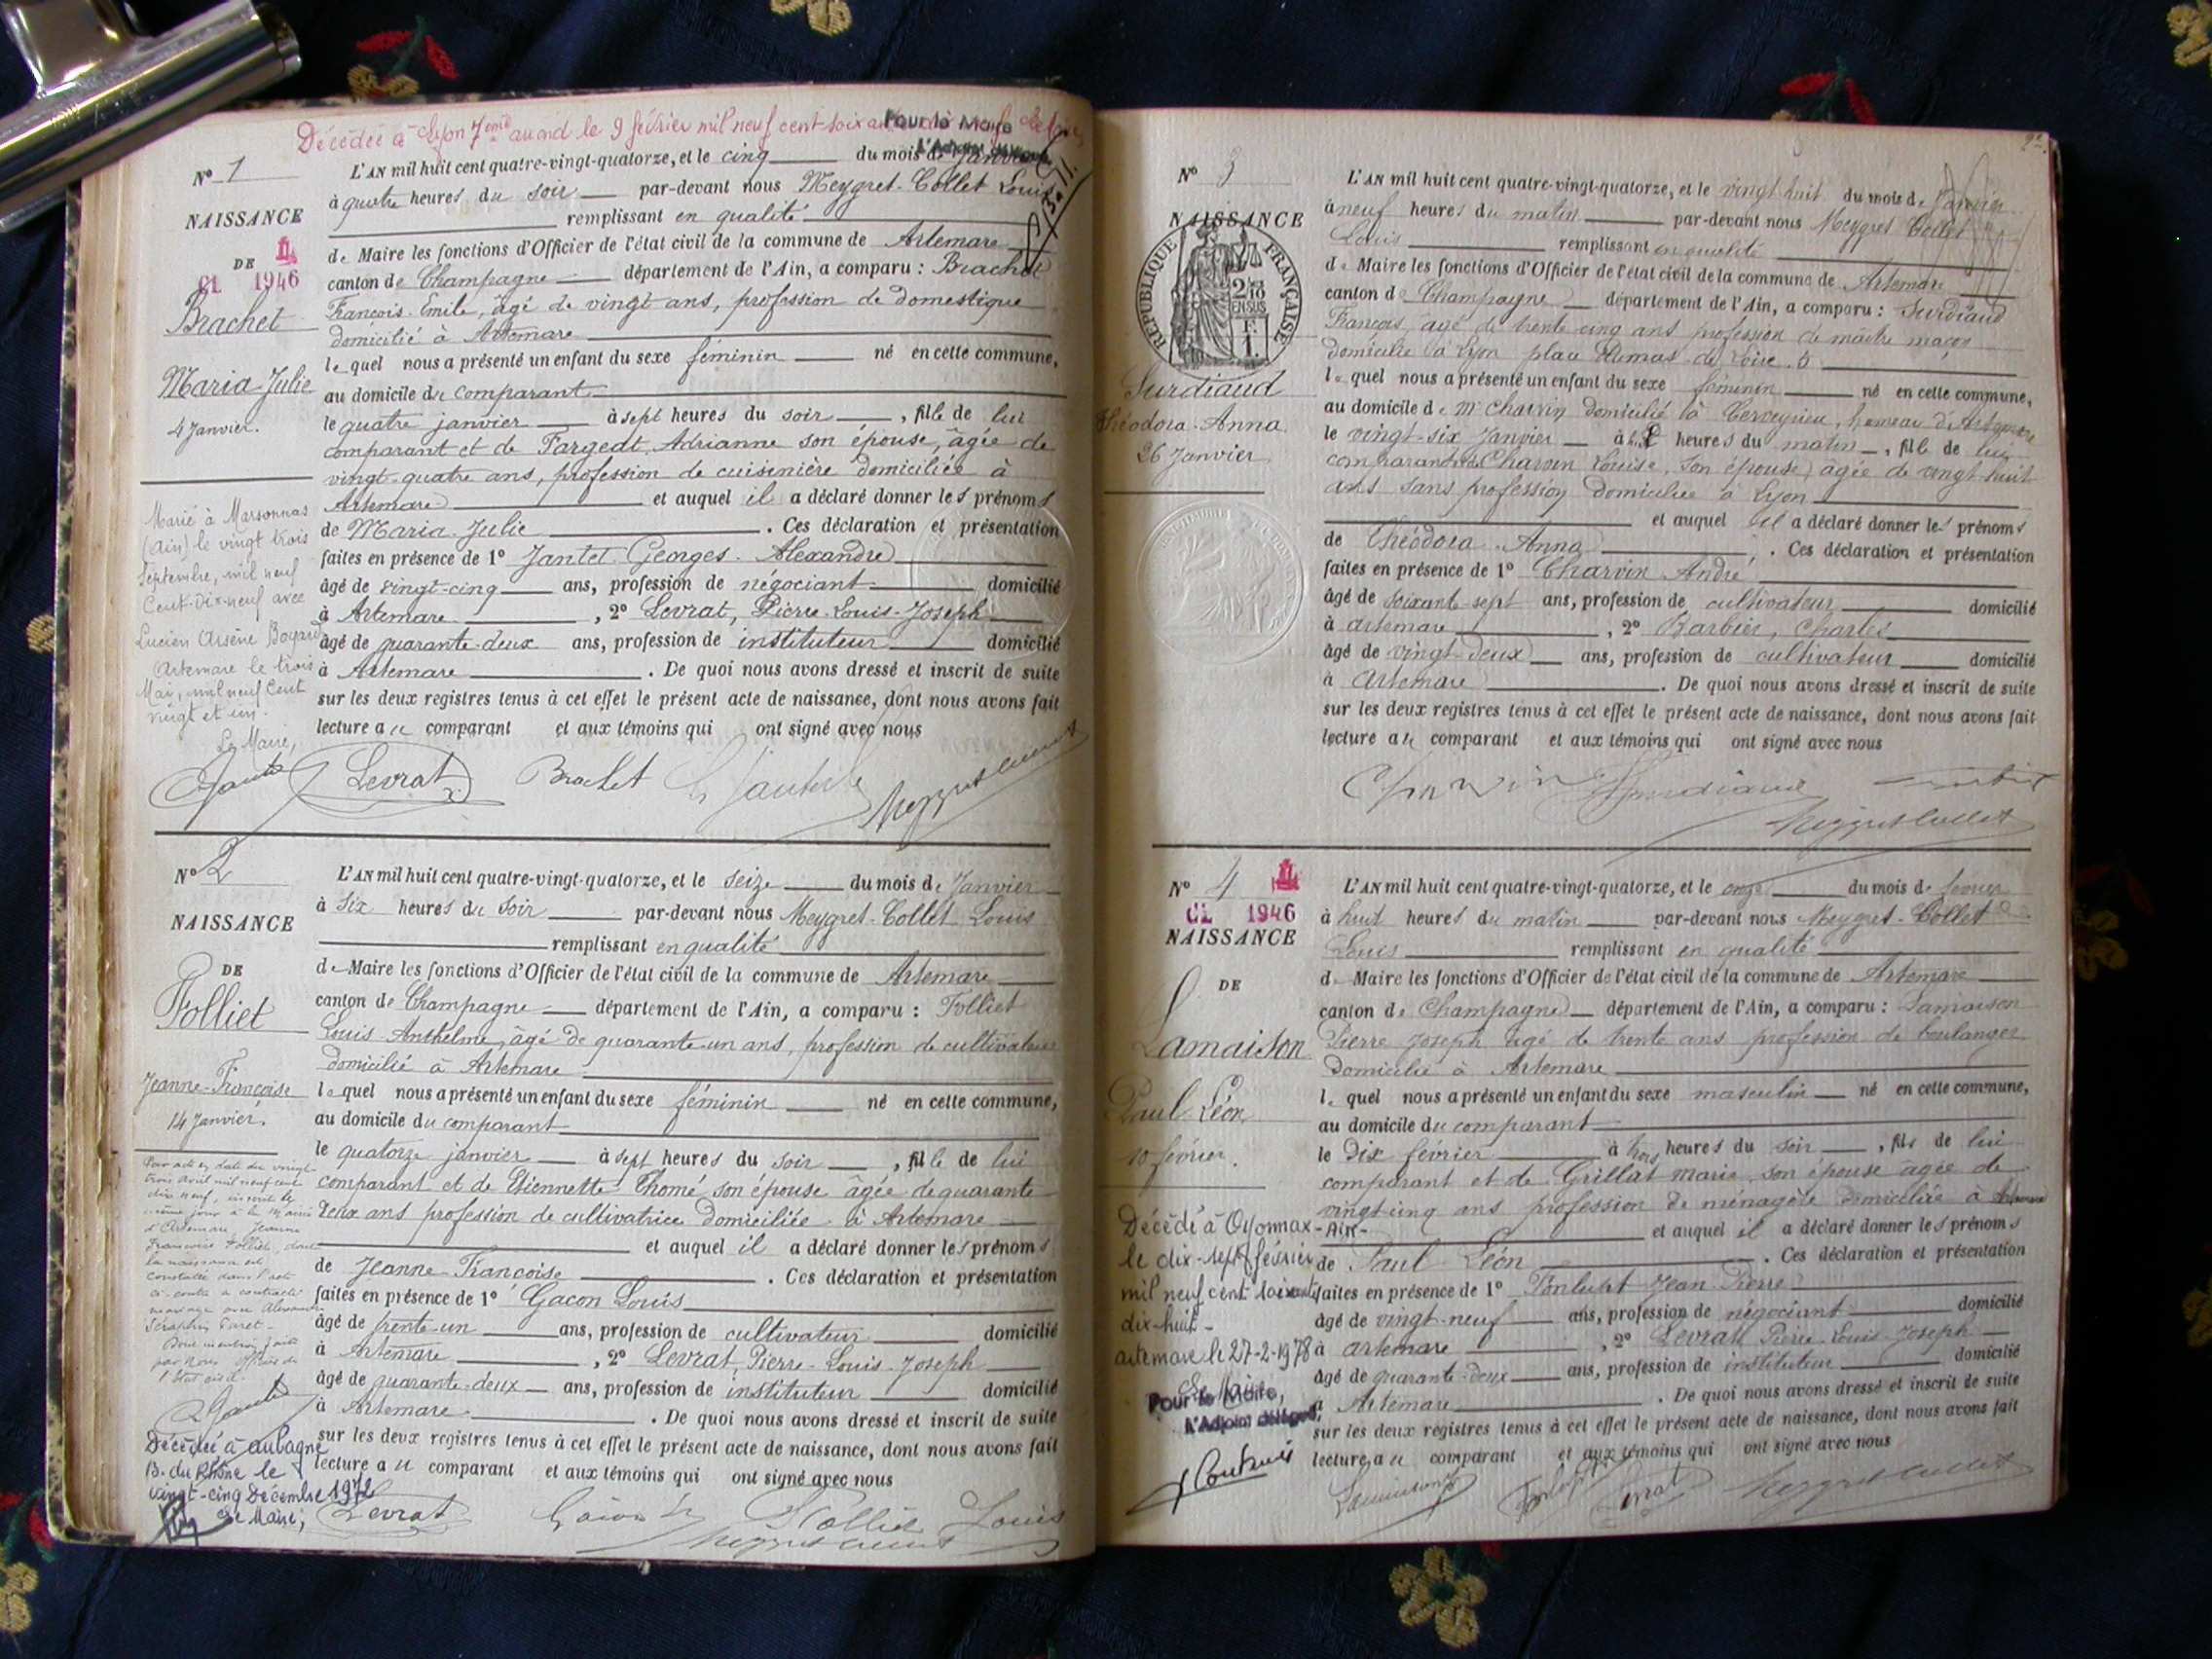 Décédée à Lyon 7eme le 9 février mil neuf cent soixante
Pour le Maire
L'Adjoint délégué
N° 1
NAISSANCE
DE
CL 1946
Brachet
Maria-Julie
4 Janvier.
L'AN mil huit cent quatre-vingt-quatorze, et le cinq du mois de Janvier
à quatre heures du soir par-devant nous Meygret-Collet Louis
remplissant en qualité
de Maire les fonctions d'Officier de l'état civil de la commune de Artemare
canton de Champagne département de l'Ain, a comparu : Brachet
François-Emile, âgé de vingt ans, profession de domestique
domicilié à Artemare
lequel nous a présenté un enfant du sexe féminin né en cette commune,
au domicile du comparant
le quatre janvier à sept heures du soir, fille de lui
comparant et de Fargedt Adrianne son épouse, âgée de
vingt-quatre ans, profession de cuisinière domiciliée à
Artemare et auquel il a déclaré donner les prénoms
de Maria-Julie. Ces déclaration et présentation
faites en présence de 1° Jantet Georges-Alexandre
âgé de vingt-cinq ans, profession de négociant domicilié
à Artemare, 2° Levrat, Pierre-Louis-Joseph
âgé de quarante-deux ans, profession de instituteur domicilié
à Artemare. De quoi nous avons dressé et inscrit de suite
sur les deux registres tenus à cet effet le présent acte de naissance, dont nous avons fait
lecture au comparant et aux témoins qui ont signé avec nous
Marié à Marsonnas
(Ain) le vingt trois
Septembre, mil neuf
Cent-Dix-neuf avec
Lucien Arsène Boyard
Artemare le trois
Mai, mil neuf Cent
vingt et un.
Le Maire,
Levrat Brachet G Jantet Meygretcollet
N° 2
NAISSANCE
DE
Folliet
Jeanne-Françoise
14 Janvier.
L'AN mil huit cent quatre-vingt-quatorze, et le seize du mois de Janvier
à six heures du soir par-devant nous Meygret-Collet Louis
remplissant en qualité
de Maire les fonctions d'Officier de l'état civil de la commune de Artemare
canton de Champagne département de l'Ain, a comparu : Folliet
Louis Anthelme, âgé de quarante-un ans, profession de cultivateur
domicilié à Artemare
lequel nous a présenté un enfant du sexe féminin né en cette commune,
au domicile du comparant
le quatorze janvier à sept heures du soir, fille de lui
comparant et de Etiennette Thomé son épouse âgée de quarante
deux ans profession de cultivatrice domiciliée à Artemare
et auquel il a déclaré donner les prénoms
de Jeanne-Françoise. Ces déclaration et présentation
faites en présence de 1° Gacon Louis
âgé de trente-un ans, profession de cultivateur domicilié
à Artemare, 2° Levrat, Pierre-Louis-Joseph
âgé de quarante-deux ans, profession de instituteur domicilié
à Artemare. De quoi nous avons dressé et inscrit de suite
sur les deux registres tenus à cet effet le présent acte de naissance, dont nous avons fait
lecture au comparant et aux témoins qui ont signé avec nous
Par acte en date du vingt
trois avril mil neuf cent
dix neuf, inscrit le
même jour à la Mairie
d'Artemare Jeanne
Françoise Folliet, dont
la naissance est
constatée dans l'acte
ci-contre a contracté
mariage avec Alexandre
Séraphin
Dont mention faite
par nous officier de
l'état civil.
Décédée à Aubagne
B. du Rhône le
vingt-cinq Décembre 1972
Le Maire,
Levrat Folliet Louis
Meygretcollet
2e.
N° 3
NAISSANCE
REPUBLIQUE FRANÇAISE
Surdiaud
Théodora-Anna
26 Janvier
L'AN mil huit cent quatre-vingt-quatorze, et le vingt huit du mois de Janvier
à neuf heures du matin par-devant nous Meygret Collet
Louis remplissant en qualité
de Maire les fonctions d'Officier de l'état civil de la commune de Artemare
canton de Champagne département de l'Ain, a comparu : Surdiaud
François, âgé de trente cinq ans profession de maître maçon
domicilié à Lyon place Dumas de Loire. 5
lequel nous a présenté un enfant du sexe féminin né en cette commune,
au domicile de Mr Charvin domicilié à Cerveyrieu, hameau d'Artemare
le vingt-six Janvier à heures du matin, fille de lui
comparant et de Charvin Louise, son épouse, âgée de vingt-huit
ans sans profession domiciliée à Lyon
et auquel il a déclaré donner les prénoms
de Théodora-Anna. Ces déclaration et présentation
faites en présence de 1° Charvin André
âgé de soixante-sept ans, profession de cultivateur domicilié
à Artemare, 2° Barbier, Charles
âgé de vingt-deux ans, profession de cultivateur domicilié
à Artemare. De quoi nous avons dressé et inscrit de suite
sur les deux registres tenus à cet effet le présent acte de naissance, dont nous avons fait
lecture au comparant et aux témoins qui ont signé avec nous
Charvin Surdiaud
Meygretcollet
N° 4
CL 1946
NAISSANCE
DE
Lamaison
Paul-Léon
10 février.
L'AN mil huit cent quatre-vingt-quatorze, et le onze du mois de février
à huit heures du matin par-devant nous Meygret-Collet
Louis remplissant en qualité
de Maire les fonctions d'Officier de l'état civil de la commune de Artemare
canton de Champagne département de l'Ain, a comparu : Lamaison
Pierre Joseph âgé de trente ans profession de boulanger
domicilié à Artemare
lequel nous a présenté un enfant du sexe masculin né en cette commune,
au domicile du comparant
le Dix février à trois heures du soir, fils de lui
comparant et de Grillat Marie son épouse âgée de
vingt-cinq ans profession de ménagère domiciliée à Artemare
et auquel il a déclaré donner les prénoms
de Paul Léon. Ces déclaration et présentation
faites en présence de 1° Jean-Pierre
âgé de vingt-neuf ans, profession de négociant domicilié
à artemare, 2° Levrat Pierre-Louis-Joseph
âgé de quarante-deux ans, profession de instituteur domicilié
à Artemare. De quoi nous avons dressé et inscrit de suite
sur les deux registres tenus à cet effet le présent acte de naissance, dont nous avons fait
lecture au comparant et aux témoins qui ont signé avec nous
Décédé à Oyonnax -Ain-
le dix-sept février
mil neuf cent soixante
dix-huit-
artemare le 27-2-1978
Le Maire,
Pour le Maire,
L'Adjoint délégué,
Lamaison Levrat Meygretcollet